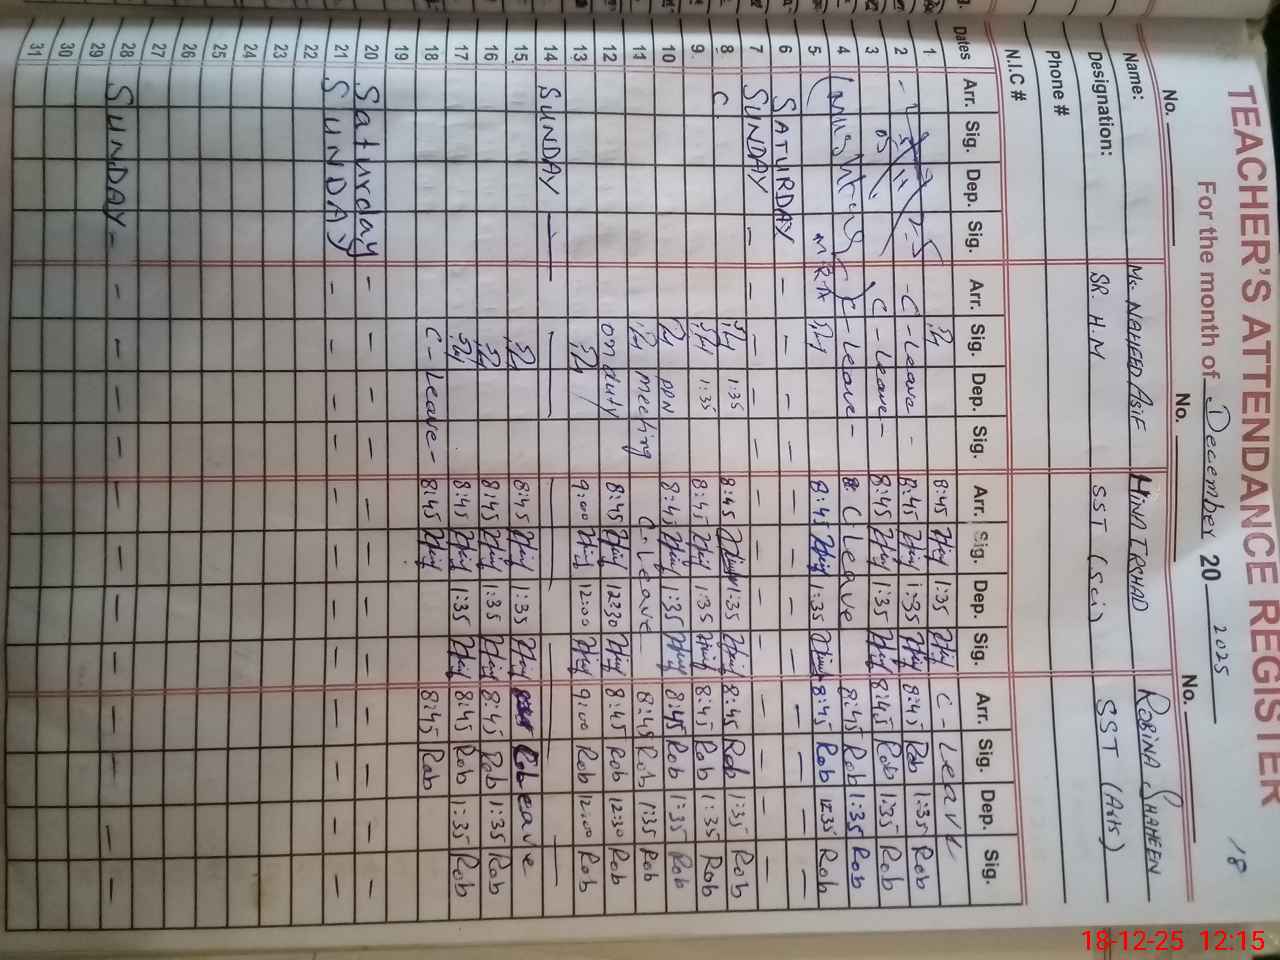 18
TEACHER'S ATTENDANCE REGISTER
For the month of December 2025
No. No. No.
Name: Ms. NAHEED ASIF HINA IRSHAD ROBINA SHAHEEN
Designation: SR. H.M SST (Sci) SST (Arts)
Phone #
N.I.C #
Dates Arr. Sig. Dep. Sig. Arr. Sig. Dep. Sig. Arr. Sig. Dep. Sig. Arr. Sig. Dep. Sig.
1 8:45 1:35 C - Leave
2 - C - Leave - 8:45 1:35 8:45 Rob 1:35 Rob
3 C - Leave - 8:45 1:35 8:45 Rob 1:35 Rob
4 C - Leave - C Leave 8:45 Rob 1:35 Rob
5 8:45 1:35 8:45 Rob 12:35 Rob
6 SATURDAY - - - - - - - - - -
7 SUNDAY - - - - - - - - - -
8 C 1:35 8:45 1:35 8:45 Rob 1:35 Rob
9 1:35 8:45 1:35 8:45 Rob 1:35 Rob
10 8:45 1:35 8:45 Rob 1:35 Rob
11 meeting C - Leave 8:45 Rob 1:35 Rob
12 on duty 8:45 12:30 8:45 Rob 12:30 Rob
13 9:00 12:00 9:00 Rob 12:00 Rob
14 SUNDAY
15 8:45 1:35 Leave
16 8:45 1:35 8:45 Rob 1:35 Rob
17 8:45 1:35 8:45 Rob 1:35 Rob
18 C - Leave - 8:45 8:45 Rob
19
20 Saturday - - - - - - - - - -
21 SUNDAY - - - - - - - - - -
22
23
24
25
26
27
28 SUNDAY - - - - - - - - - -
29
30
31
18-12-25 12:15